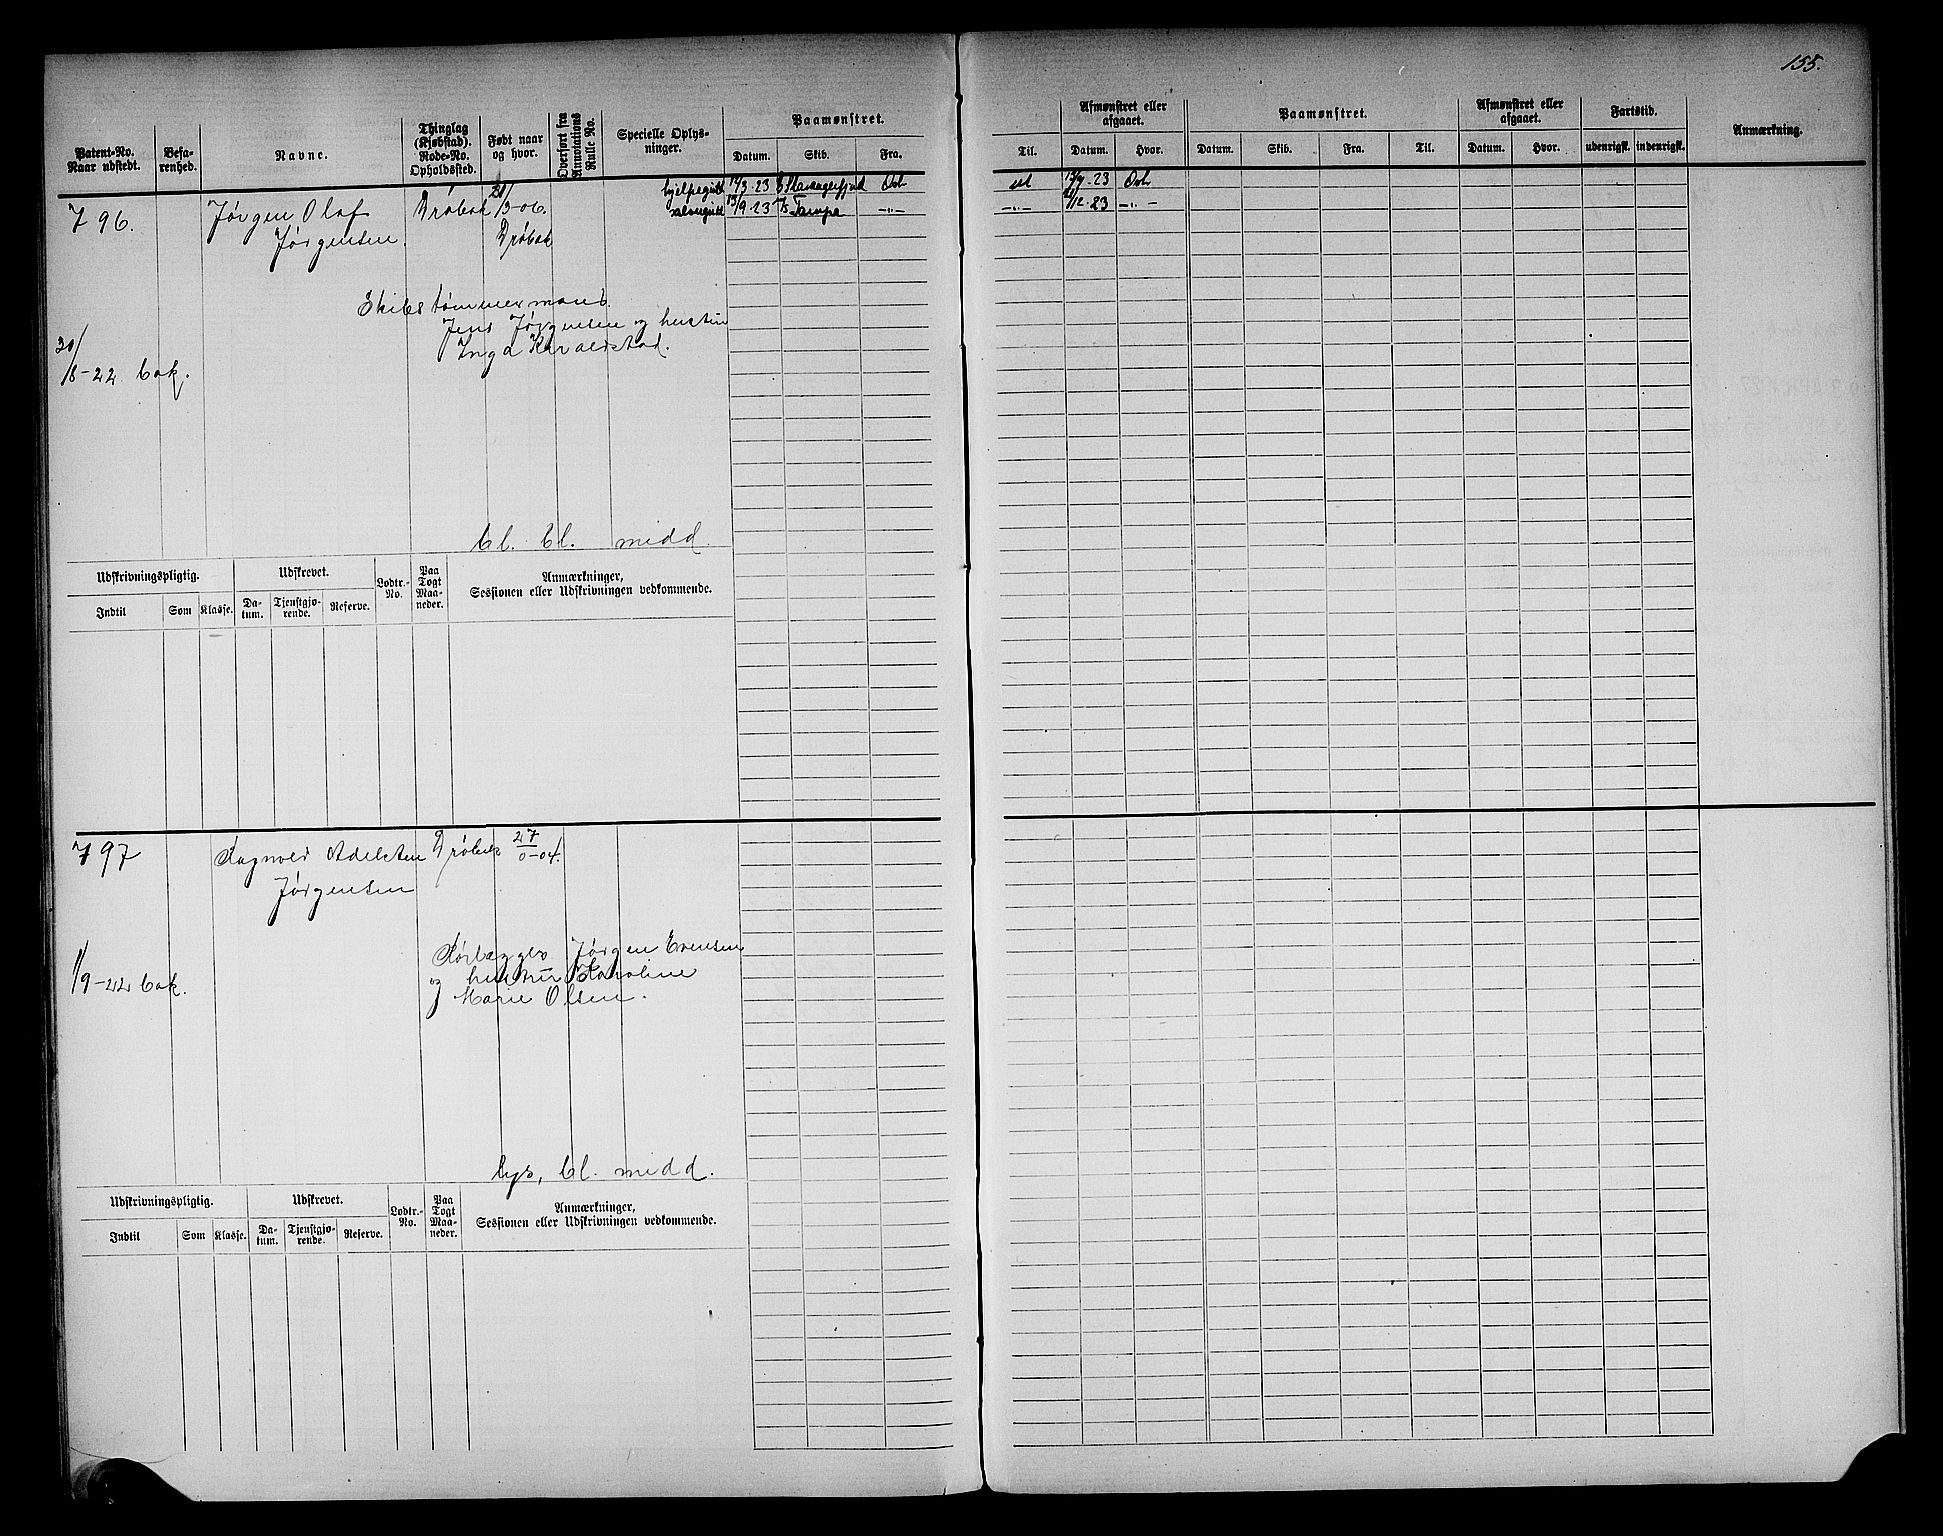 155.
Patent-No. Naar udstedt. Befarenhed. Navne. Thinglag (Kjøbstad). Rode-No. Opholdssted. Født naar og hvor. Overført fra Annotations Rulle No. Specielle Oplysninger. Paamønstret. Afmønstret eller afgaaet. Paamønstret. Afmønstret eller afgaaet. Fartstid. Anmærkning.
Datum. Skib. Fra. Til. Datum. Hvor. Datum. Skib. Fra. Til. Datum. Hvor. udenrigsk. indenrigsk.
hjelpegutt 23 Stavangerfjord Osl ut 13/9-23 Osl
796. Jørgen Olaf Drøbak /3-06. 13/9-23 Tampa -"- -"- /12-23 -"-
Jørgensen. Drøbak
Skibstømmermand
Jens Jørgensen og hustru
Inga
30/
8-22
bl. bl. midd.
Udskrivningspligtig. Udskrevet. Lodtr.-No. Paa Togt Maaneder. Anmærkninger, Sessionen eller Udskrivningen vedkommende.
Indtil Som Klasse. Datum. Tjenstgjørende. Reserve.
797 Ragnvld Adelsten Drøbak 27
Jørgensen
Jørgen Evensen
og hustru Karoline
Marie Olsen.
1/9-22
lys, bl. midd.
Udskrivningspligtig. Udskrevet. Lodtr.-No. Paa Togt Maaneder. Anmærkninger, Sessionen eller Udskrivningen vedkommende.
Indtil Som Klasse. Datum. Tjenstgjørende. Reserve.